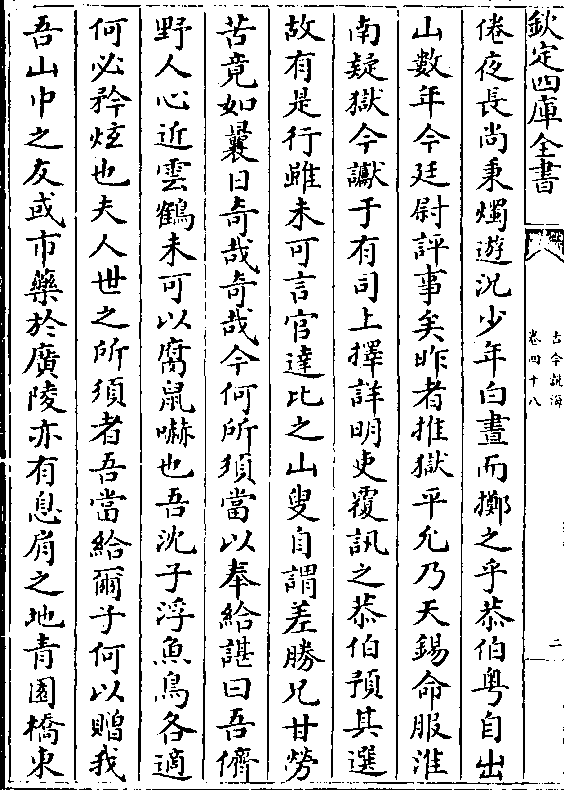 欽定四庫全書
古今說海
卷四十八
二
倦夜長尚秉燭遊況少年白晝而擲之乎恭伯粵自出
山數年今廷尉評事矣昨者推獄平允乃天錫命服淮
南疑獄今讞于有司上擇詳明吏覆訊之恭伯預其選
故有是行雖未可言官達比之山叟自謂差勝兄甘勞
苦竟如曩日奇哉奇哉今何所須當以奉給諶曰吾儕
野人心近雲鶴未可以腐鼠嚇也吾沈子浮魚鳥各適
何必矜炫也夫人世之所須者吾當給爾子何以贈我
吾山中之友或市藥於廣陵亦有息肩之地青園橋東